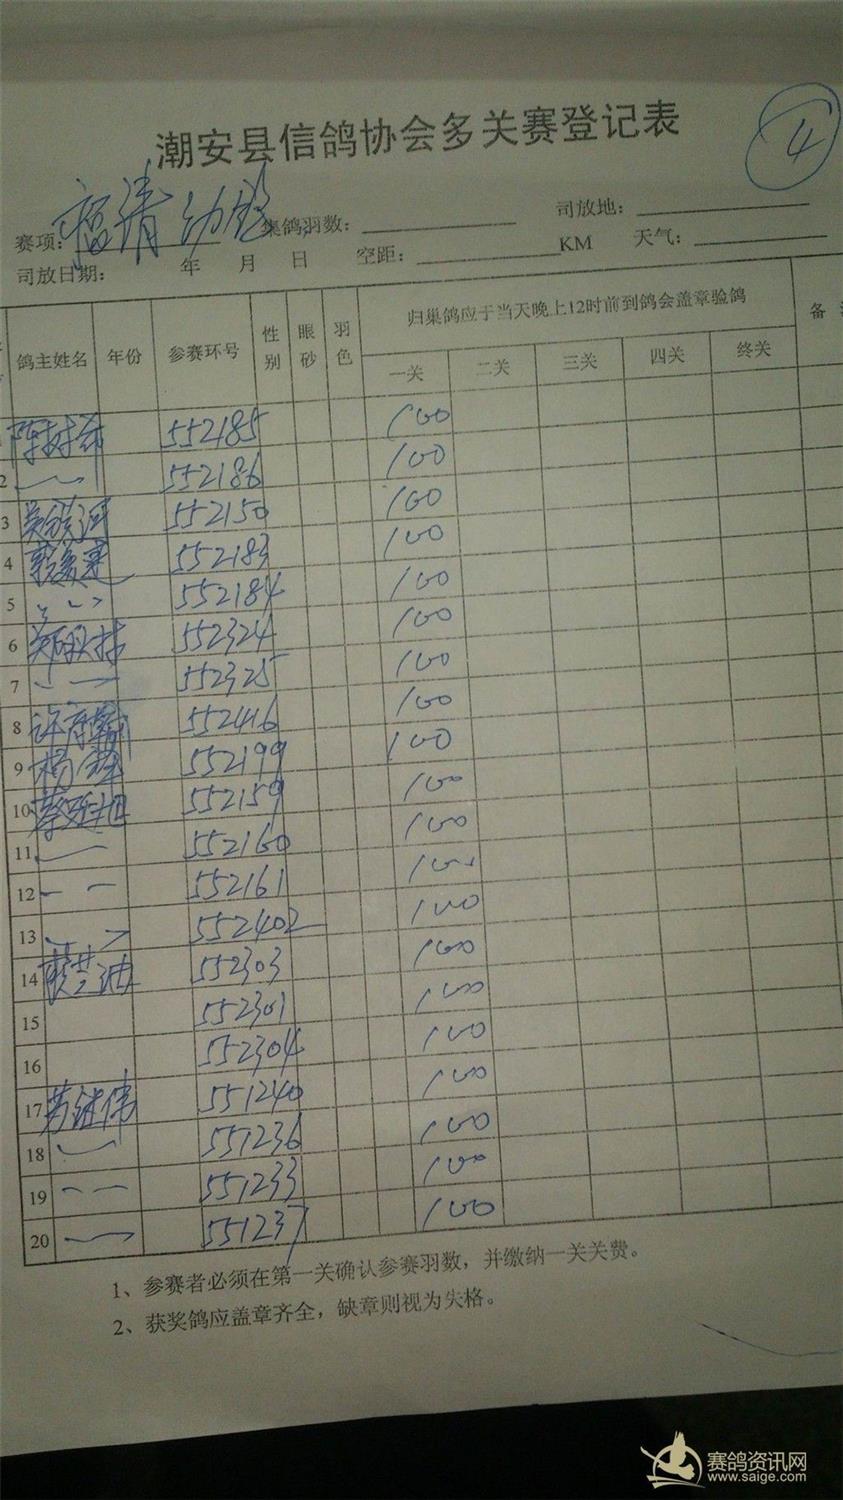 潮安县信鸽协会多关赛登记表
4
赛项: 福清幼鸽 集鸽羽数: 司放地:
司放日期: 年 月 日 空距: KM 天气:
鸽主姓名 年份 参赛环号 性别 眼砂 羽色 归巢鸽应于当天晚上12时前到鸽会盖章验鸽 备
一关 二关 三关 四关 终关
552185 100
2 552186 100
3 552150 100
4 552183 100
5 552184 100
6 552324 100
7 552325 100
8 552416 100
9 552199 100
10 552159 100
11 552160 100
12 552161 100
13 552402 100
14 552303 100
15 552301 100
16 552304 100
17 551240 100
18 551236 100
19 551233 100
20 551237 100
1、参赛者必须在第一关确认参赛羽数，并缴纳一关关费。
2、获奖鸽应盖章齐全，缺章则视为失格。
赛鸽资讯网
www.saige.com